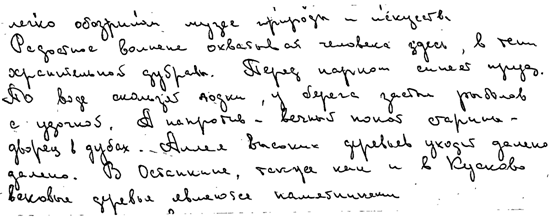 легко обозримом музее природы и искусств.
Радостное волнение охватывает человека здесь, в тени
хранительной дубравы. Перед парком синеет пруд.
По воде скользят лодки, у берега застыл рыболов
с удочкой. А напротив - вечный покой старины -
дворец в дубах. Аллея высоких деревьев уходит далеко
далеко. В Останкине, также как и в Кусково
вековые деревья являются памятниками